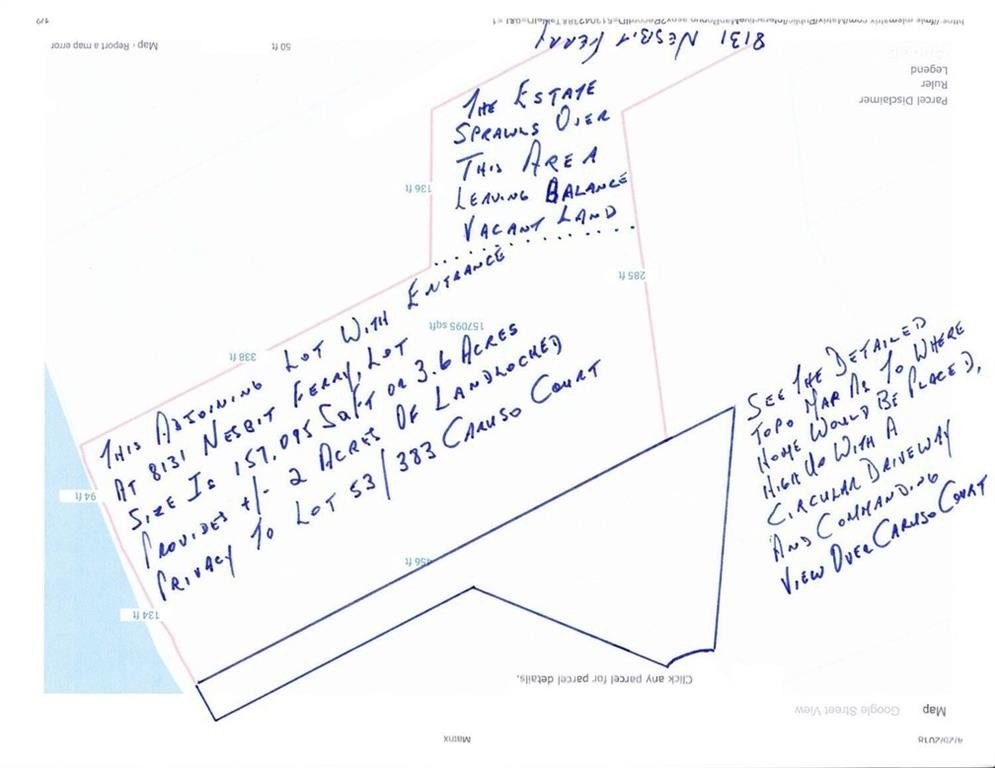 8131 NESBIT FERRY
THE ESTATE
SPRAWLS OVER
THIS AREA
LEAVING BALANCE
VACANT LAND
THIS ADJOINING LOT WITH ENTRANCE
AT 8131 NESBIT FERRY, LOT
SIZE IS 157,095 SQFT OR 3.6 ACRES
PROVIDES +/- 2 ACRES OF LANDLOCKED
PRIVACY TO LOT 53/383 CARUSO COURT
SEE THE DETAILED
TOPO MAP AS TO WHERE
HOME WOULD BE PLACED,
HIGH UP WITH A
CIRCULAR DRIVEWAY
AND COMMANDING
VIEW OVER CARUSO COURT
Matrix
Map
Google Street View
Click any parcel for parcel details.
134 ft
456 ft
94 ft
338 ft
157095 sqft
285 ft
136 ft
Parcel Disclaimer
Ruler
Legend
50 ft
Map · Report a map error
1/2